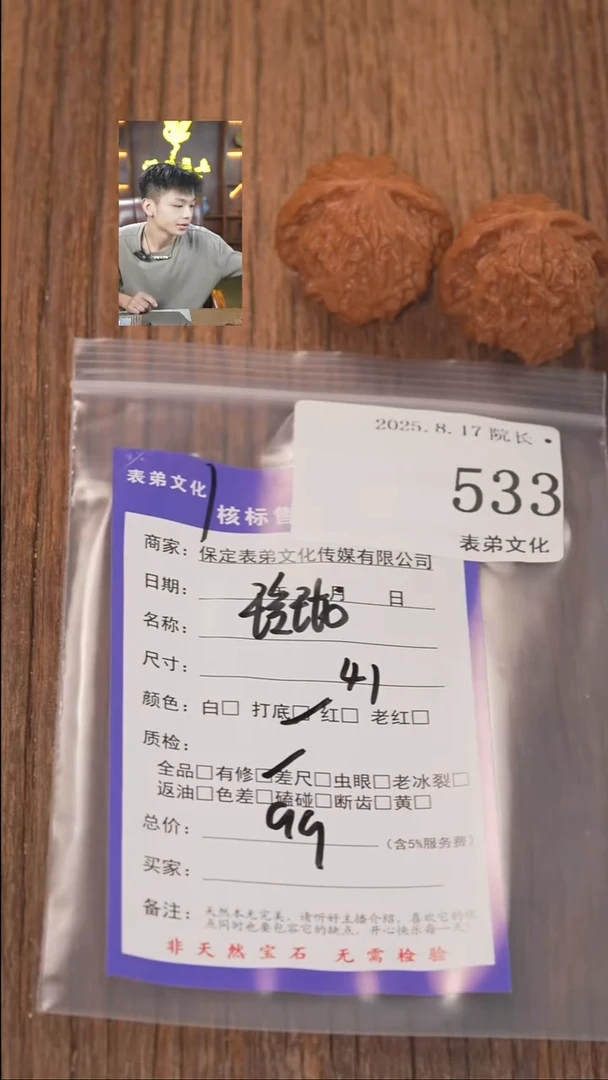 2025.8.17 院长
533
表弟文化
表弟文化
核标售
商家：保定表弟文化传媒有限公司
日期： 月 日
名称：
尺寸： 41
颜色：白□ 打底□ 红□ 老红□
质检：
全品□有修□差尺□虫眼□老冰裂□
返油□色差□磕碰□断齿□黄□
总价： 99 （含5%服务费）
买家：
备注：天然本无完美，请听好主播介绍，喜欢它的优
点同时也要包容它的缺点，开心快乐每一天
非天然宝石 无需检验